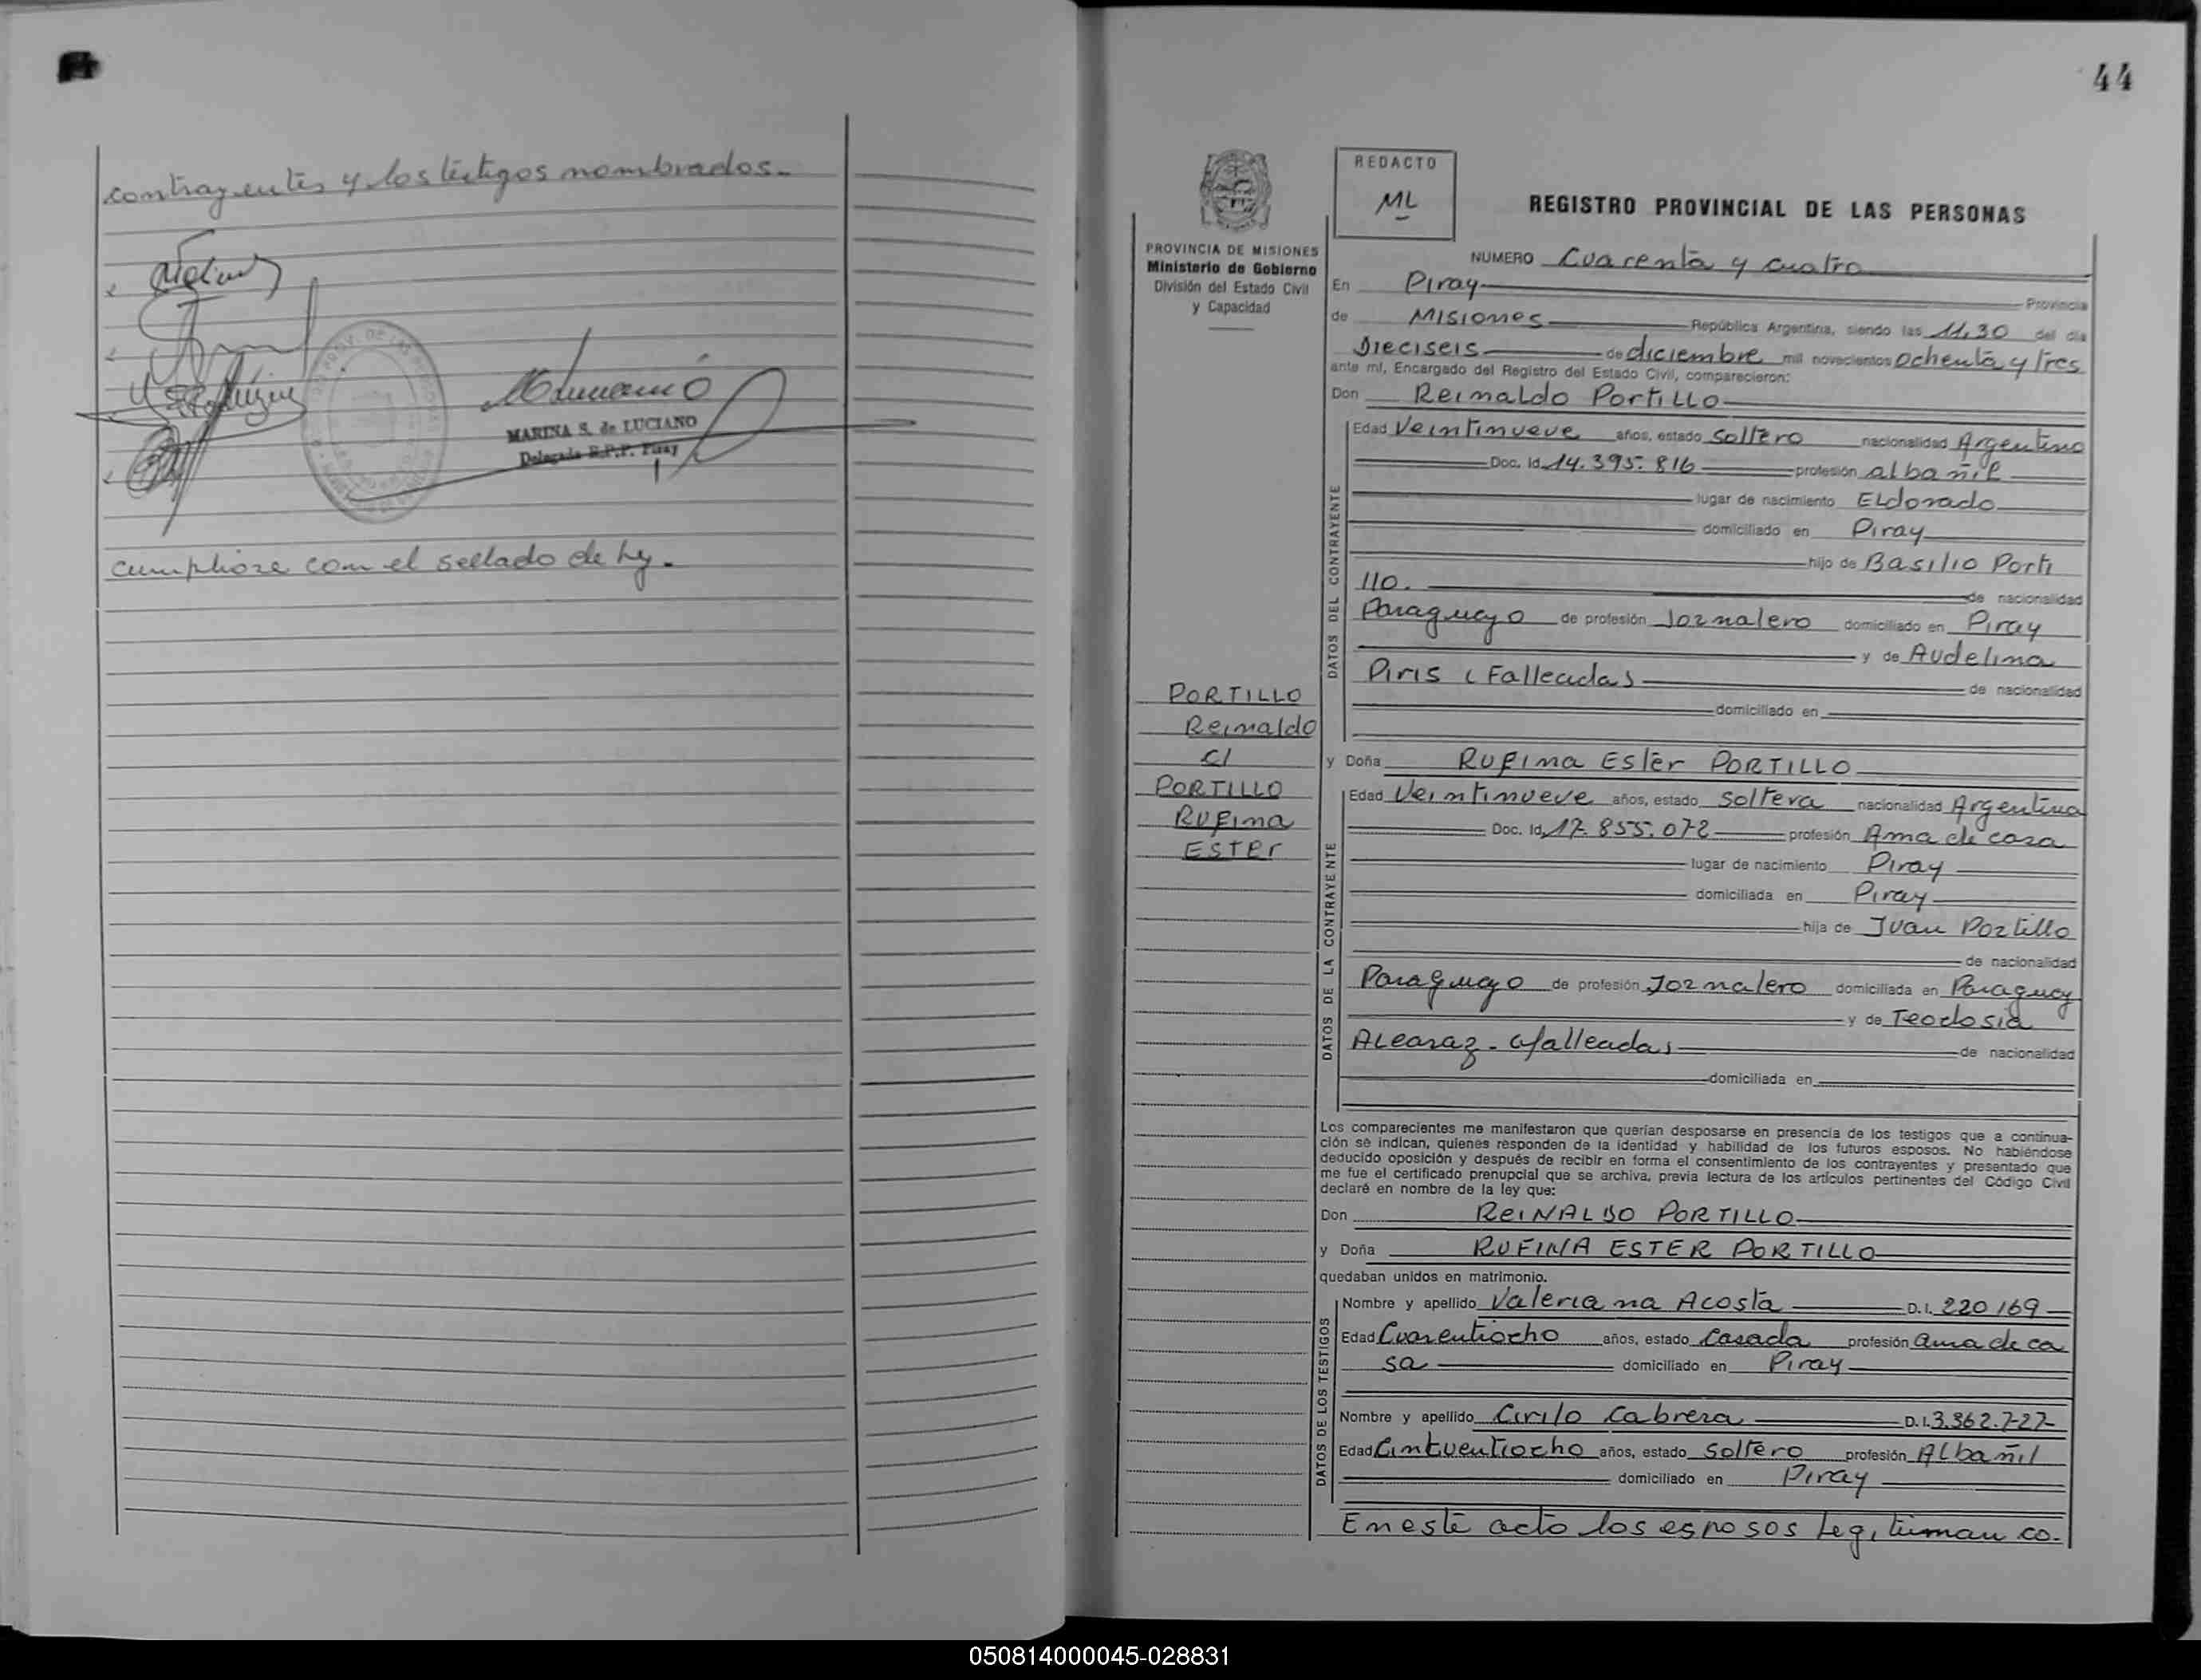 contrayentes y los testigos nombrados.-
MARINA S. de LUCIANO
Delegada R.P.P. Piray
cumpliose con el sellado de ley.-
44
REDACTO
ML
REGISTRO PROVINCIAL DE LAS PERSONAS
PROVINCIA DE MISIONES
Ministerio de Gobierno
División del Estado Civil
y Capacidad
NUMERO Cuarenta y cuatro
En Piray Provincia
de Misiones República Argentina, siendo las 11,30 del día
Dieciseis de diciembre mil novecientos ochenta y tres
ante mí, Encargado del Registro del Estado Civil, comparecieron:
Don Reinaldo Portillo
DATOS DEL CONTRAYENTE
Edad Veintinueve años, estado soltero nacionalidad Argentino
Doc. Id. 14.395.816 profesión albañil
lugar de nacimiento Eldorado
domiciliado en Piray
hijo de Basilio Porti
llo. de nacionalidad
Paraguayo de profesión Jornalero domiciliado en Piray
y de Audelina
Piris (Fallecida) de nacionalidad
domiciliado en
PORTILLO
Reinaldo
c/
PORTILLO
RUFina
ESTEr
y Doña RUFina Ester PORTILLO
DATOS DE LA CONTRAYENTE
Edad Veintinueve años, estado soltera nacionalidad Argentina
Doc. Id. 17.855.072 profesión Ama de casa
lugar de nacimiento Piray
domiciliada en Piray
hija de Juan Portillo
de nacionalidad
Paraguayo de profesión Jornalero domiciliada en Paraguay
y de Teodosia
Alcaraz - (fallecida) de nacionalidad
domiciliada en
Los comparecientes me manifestaron que querían desposarse en presencia de los testigos que a continua-
ción se indican, quienes responden de la identidad y habilidad de los futuros esposos. No habiéndose
deducido oposición y después de recibir en forma el consentimiento de los contrayentes y presentado que
me fue el certificado prenupcial que se archiva, previa lectura de los artículos pertinentes del Código Civil
declaré en nombre de la ley que:
Don REINALDO PORTILLO
y Doña RUFINA ESTER PORTILLO
quedaban unidos en matrimonio.
DATOS DE LOS TESTIGOS
Nombre y apellido Valeriana Acosta D.I. 220169
Edad Cuarentiocho años, estado casada profesión ama de ca
sa domiciliado en Piray
Nombre y apellido Cirilo Cabrera D.I. 3.362.727
Edad Cincuentiocho años, estado soltero profesión Albañil
domiciliado en Piray
En este acto los esposos legitiman co-
050814000045-028831